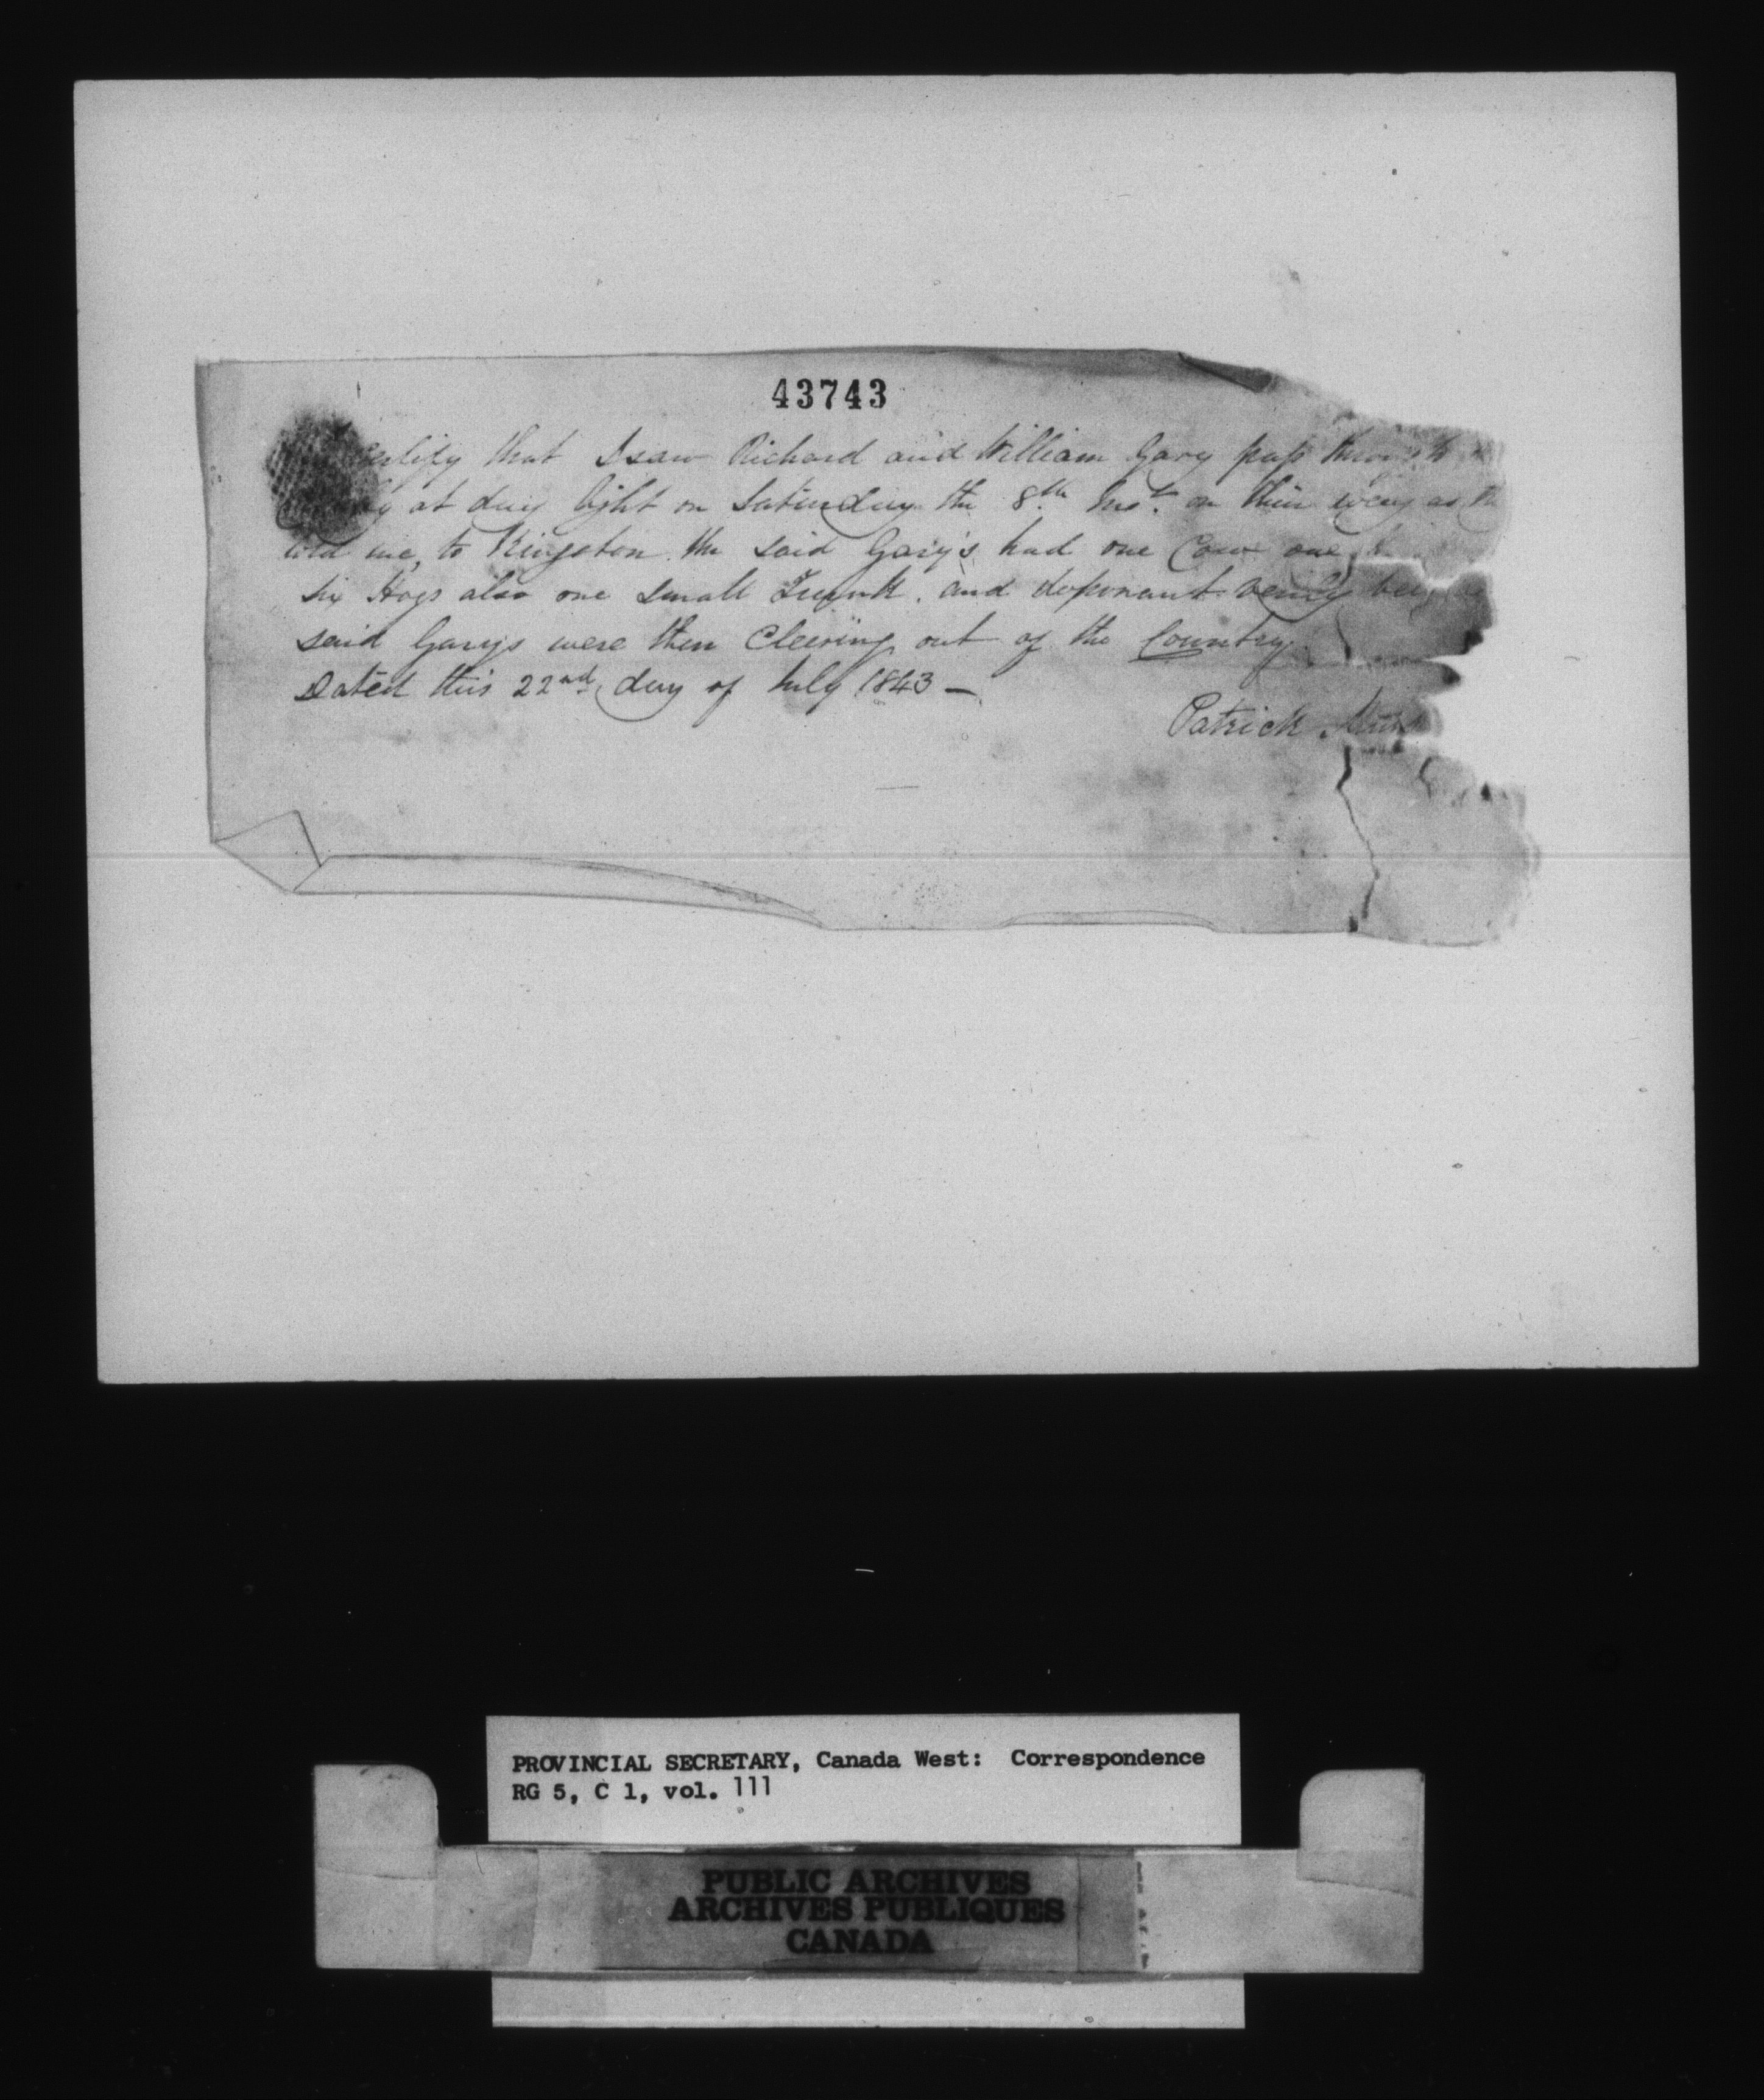 43743
that I saw Richard and William Gary pass through
at day light on Saturday the 8th Inst. on their way as
told me, to Kingston. the said Gary's had one Cow one
six Hogs also one small Trunk. and deponant verily
said Garys were then Cleering out of the Country.
Dated this 22nd day of July 1843 —
Patrick
PROVINCIAL SECRETARY, Canada West: Correspondence
RG 5, C 1, vol. 111
PUBLIC ARCHIVES
ARCHIVES PUBLIQUES
CANADA